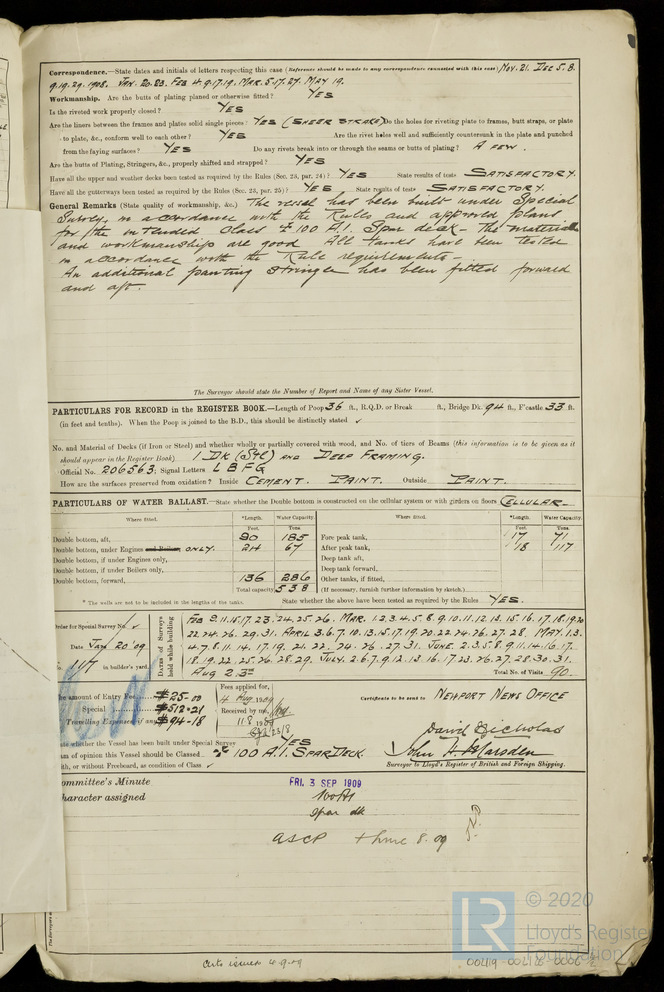 Correspondence.—State dates and initials of letters respecting this case (Reference should be made to any correspondence connected with this case) Nov. 21. Dec 5. 8.
9. 19. 29. 1908. Jan. 20. 23. Feb 4. 9. 17. 19. Mar. 5. 17. 27. May 19.
Workmanship. Are the butts of plating planed or otherwise fitted? Yes
Is the riveted work properly closed? Yes
Are the liners between the frames and plates solid single pieces? Yes (Sheer Strake) Do the holes for riveting plate to frames, butt straps, or plate
to plate, &c., conform well to each other? Yes Are the rivet holes well and sufficiently countersunk in the plate and punched
from the faying surfaces? Yes Do any rivets break into or through the seams or butts of plating? A few.
Are the butts of Plating, Stringers, &c., properly shifted and strapped? Yes
Have all the upper and weather decks been tested as required by the Rules (Sec. 23, par. 24)? Yes State results of tests Satisfactory.
Have all the gutterways been tested as required by the Rules (Sec. 23, par. 25)? Yes State results of tests Satisfactory.
General Remarks (State quality of workmanship, &c.) The vessel has been built under Special
Survey, in accordance with the Rules and approved plans
for the intended class 100 A.1. Spar deck – The material
and workmanship are good All tanks have been tested
in accordance with the Rule requirements –
An additional panting stringer has been fitted forward
and aft.
The Surveyor should state the Number of Report and Name of any Sister Vessel.
PARTICULARS FOR RECORD in the REGISTER BOOK.—Length of Poop 36 ft., R.Q.D. or Break ft., Bridge Dk. 94 ft., F'castle 33 ft.
(in feet and tenths). When the Poop is joined to the B.D., this should be distinctly stated ✓
No. and Material of Decks (if Iron or Steel) and whether wholly or partially covered with wood, and No. of tiers of Beams (this information is to be given as it
should appear in the Register Book) 1 Dk (Stl) and Deep Framing.
Official No. 206563; Signal Letters L B F G
How are the surfaces preserved from oxidation? Inside Cement. Paint. Outside Paint.
PARTICULARS OF WATER BALLAST.—State whether the Double bottom is constructed on the cellular system or with girders on floors Cellular
Where fitted. *Length. Water Capacity. Where fitted. *Length. Water Capacity.
Feet. Tons. Feet. Tons.
Double bottom, aft, 90 185 Fore peak tank, 17 71
Double bottom, under Engines and Boilers, only. 24 67 After peak tank, 18 117
Double bottom, if under Engines only, Deep tank, aft,
Double bottom, if under Boilers only, Deep tank, forward,
Double bottom, forward, 136 286 Other tanks, if fitted,
Total capacity 538 (If necessary, furnish further information by sketch.)
* The wells are not to be included in the lengths of the tanks. State whether the above have been tested as required by the Rules Yes.
Order for Special Survey No. ✓
Date Jan 20 '09
No. 117 in builder's yard.
DATES of Surveys held while building
Feb 9. 11. 15. 17. 23. 24. 25. 26. Mar. 1. 2. 3. 4. 5. 8. 9. 10. 11. 12. 13. 15. 16. 17. 18. 19. 20
22. 24. 26. 29. 31. April 3. 6. 7. 10. 13. 15. 17. 19. 20. 22. 24. 26. 27. 28. May. 1. 3.
4. 7. 8. 11. 14. 17. 19. 21. 22. 24. 26. 27. 31. June. 2. 3. 5. 8. 9. 11. 14. 16. 17.
18. 19. 22. 25. 26. 28. 29. July. 2. 6. 7. 9. 12. 13. 16. 17. 23. 26. 27. 28. 30. 31.
Aug 2. 3rd Total No. of Visits 90.
The amount of Entry Fee $25-00
Special $512-21
Travelling Expenses if any $94-18
Fees applied for,
4 Aug 1909
Received by me,
11 8 1909
Certificate to be sent to Newport News Office
State whether the Vessel has been built under Special Survey Yes
am of opinion this Vessel should be Classed 100 A.1. Spar Deck.
with, or without Freeboard, as condition of Class ✓
David Nicholas
John H. Marsden
Surveyor to Lloyd's Register of British and Foreign Shipping.
Committee's Minute FRI. 3 SEP 1909
Character assigned 100A1
Spar dk
ASCP + LMC 8.09
Certs issued 4.9.09
© 2020
LR
Lloyd's Register
Foundation